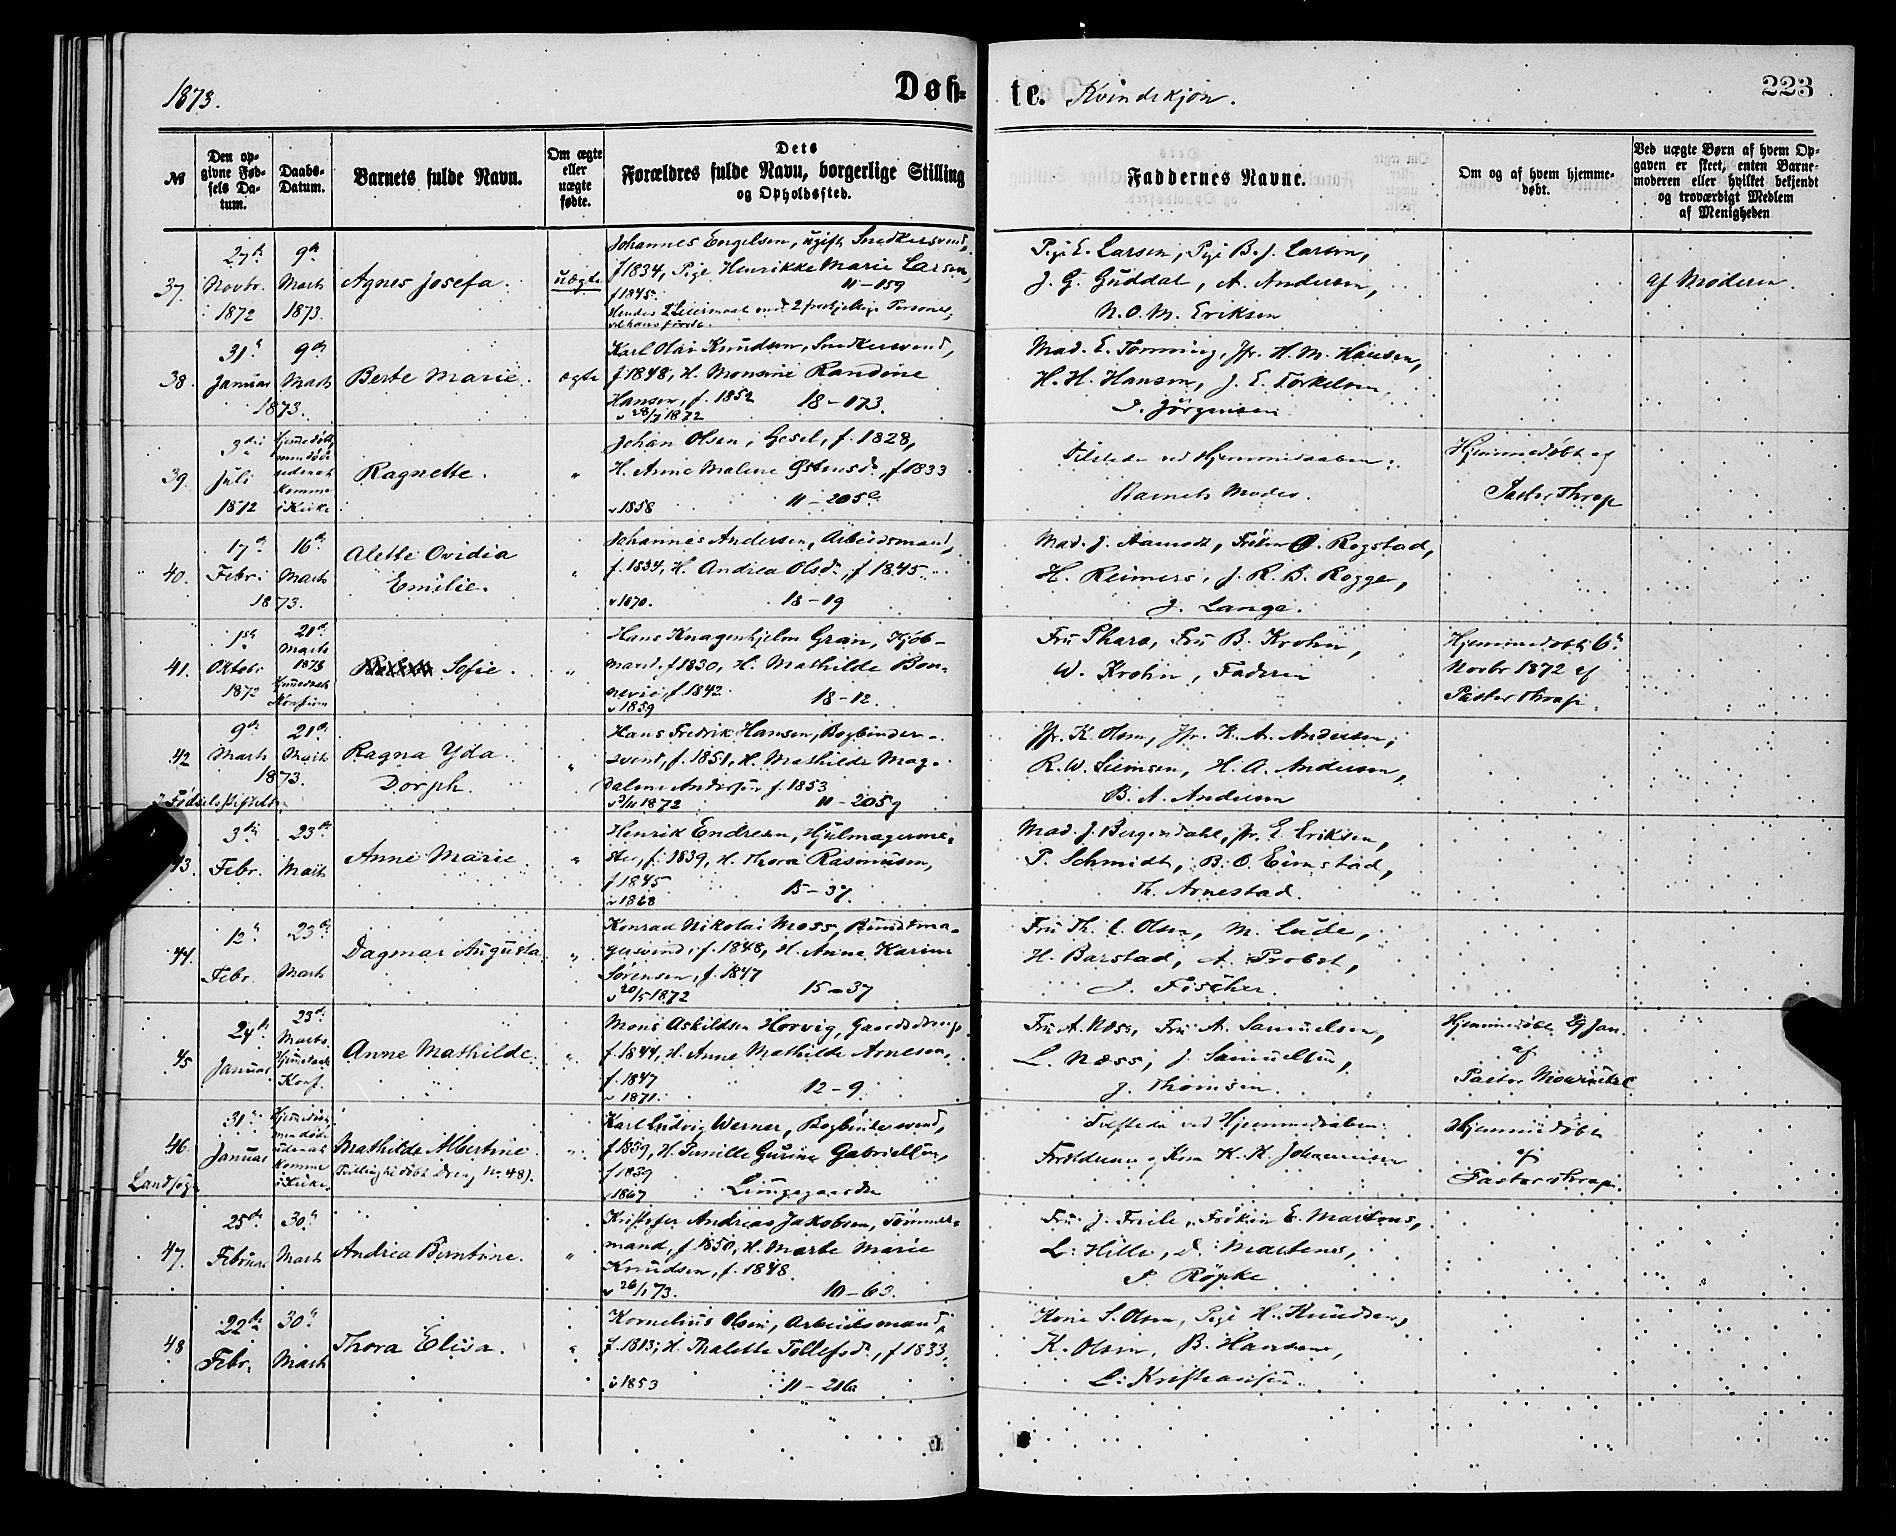 1873.
Døb-
te. Kvindekjøn.
223
№
Den opgivne Fødsels Datum.
Daabs-Datum.
Barnets fulde Navn.
Om ægte eller uægte fødte.
Dets Forældres fulde Navn, borgerlige Stilling og Opholdssted.
Faddernes Navne.
Om og af hvem hjemmedøbt.
Ved uægte Børn af hvem Opgaven er skeet, enten Barnemoderen eller hvilket bekjendt og troværdigt Medlem af Menigheden
37.
27de Novbr. 1872
9de Marts 1873.
Agnes Josefa.
uægte
Johannes Engelsen, ugift Snedkersvend,
f 1834, Pige Henrikke Marie Larsen,
f 1845. 11-159
Hendes 2 Leiermaal med 2 forskjellige Personer,
Pige E. Larsen, Pige B. J. Larsen,
J. G. Guddal, A. Andersen,
N. O. M. Eriksen
af Moderen.
38.
31te Januar 1873.
9de Marts
Berte Marie.
ægte
Karl Olai Knudsen, Snedkersvend,
f 1848, H. Monsine Randine
Hansen, f. 1852 18-173.
v 28/7 1872
Mad. E. Tonning, Jfr. H. M. Hansen,
H. H. Hansen, J. E. Torkelsen,
J. Jörgensen
39.
3die Juli 1872
Hjemmedøbt, men døde uden at komme i Kirke
Ragnette.
"
Johan Olsen, Gesel, f. 1828,
H. Anne Malene Østensd., f 1833
v 1858 11-205
Tilstede ved Hjemmedaaben:
Barnets Moder.
Hjemmedøbt af
Pastor Thrap
40.
17de Febr. 1873.
16de Marts
Alette Ovidia
Emilie.
"
Johannes Andersen, Arbeidsmand,
f. 1834, H. Andrea Olsd., f 1845.
v 1870. 18-19
Mad. J. Aamodt, Frøken O. Rogstad,
H. Reimers, J. R. B. Rogge,
J. Lange.
41.
1ste Oktobr 1872
21de Marts 1873
Sofie.
"
Hans Knagenhjelm Gran, Kjøb-
mand, f 1830, H. Mathilde Bon-
nevie, f. 1842. 18-12.
v 1859
Fru Phara, Fru B. Krohn,
W. Krohn, Faderen
Hjemmedøbt 6te
Novbr 1872 af
Pastor Thrap.
42
9de Marts 1873.
21de Marts
Ragna Yda
Dorph.
"
Hans Fredrik Hansen, Bogbinder-
svend, f. 1851, H. Mathilde Mag-
dalene Andersen f. 1853
1872 11-2059
Jfr. K. Olsen, Jfr. K. A. Andersen,
R. W. Siemsen, H. A. Andersen,
B. A. Andersen
43.
3die Febr.
23de Marts
Anne Marie.
"
Henrik Endresen, Hjulmagerme-
ster, f. 1839, H. Thora Rasmusen,
f 1845 15-37.
v 1868
Mad. J. Bergendahl, Jfr. E. Eriksen,
P. Schmidt, B. O. Eimstad,
Th. Arnestad.
44.
12te Febr.
23de Marts
Dagmar Augusta
"
Konrad Nikolai Moss, Bundtma-
gersvend, f. 1848, H. Anna Karine
Sørensen, f. 1847
v 20/5 1872 15-37
Fru Th. C. Olsen, M. Lude,
H. Barstad, A. Probst,
J. Fischer.
45
24de Januar
23de Marts.
Hjemmedaab Konf.
Anne Mathilde.
"
Mons Askildsen Horvig, Gaardsdreng
f. 1844, H. Anne Mathilde Arnesen,
f. 1847 12-9.
v 1871.
Fru A. Næss, Fru A. Samuelsen,
L. Næss, J. Samuelsen,
J. Thomsen.
Hjemmedøbt 29 Jan.
af
Pastor Mowinckel
46.
Landsogn
31te Januar
Hjemmedøbt, men døde uden at komme i Kirke.
Mathilde Albertine
(Tvilling til døbt Dreng No. 48).
"
Karl Ludvig Werner, Bogbindersvend,
f 1839, H. Pernille Gurine Gabrielsen,
f 1839
v 1867 Lungegaarden
Tilstede ved Hjemmedaaben:
Forældrene og Kone K. K. Johannesen
Hjemmedøbt
af
Pastor Thrap.
47.
25de Februar
30te Marts
Andrea Berntine.
"
Kristofer Andreas Jakobsen, Tømmer-
mand, f 1850, H. Marte Marie
Knudsen, f. 1848.
v 26/1 73. 10-63.
Fru J. Friele, Frøken E. Martens,
L. Hille, D. Martens,
P. Röpke
48
22de Febr.
30te Marts
Thora Elisa.
"
Kornelius Olsen, Arbeidsmand,
f. 1813, H. Thalette Tollefsd., f 1833,
v 1853 11-216
Kone S. Olsen, Pige H. Knudsen,
K. Olsen, B. Hansen,
L. Kristiansen.